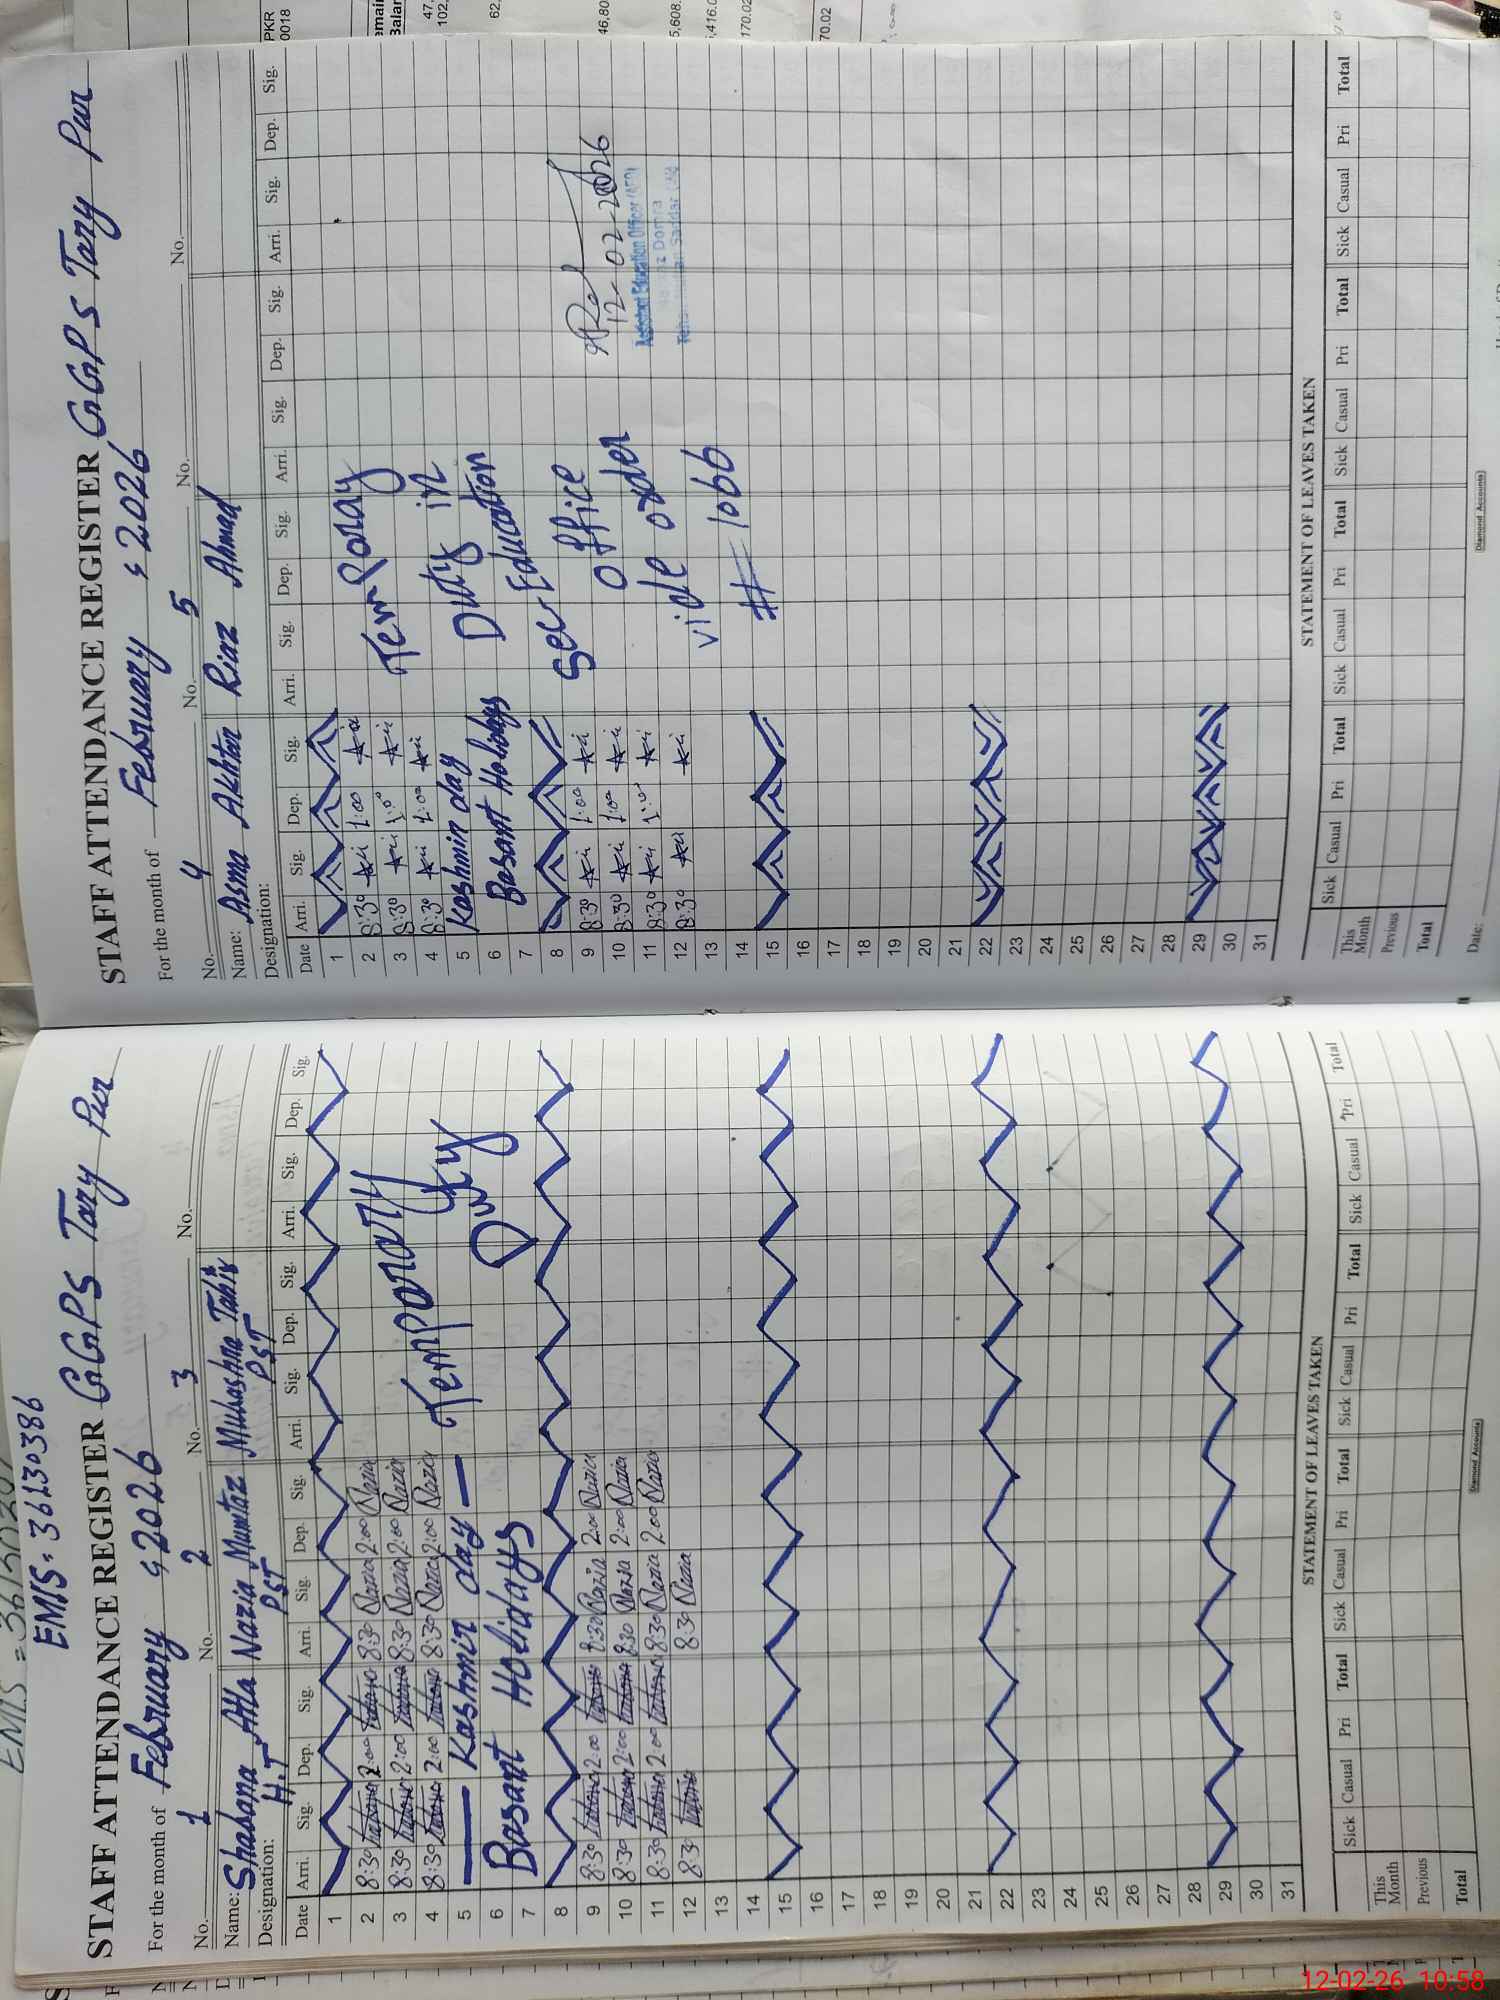 EMIS = 36130386
STAFF ATTENDANCE REGISTER GGPS Tary Pur
For the month of February, 2026
No. 1 No. 2 No. 3 No.
Name: Shabana Atta Nazia Mumtaz Mubashra Tahir
Designation: H.T PST PST
Date Arri. Sig. Dep. Sig. Arri. Sig. Dep. Sig. Arri. Sig. Dep. Sig. Arri. Sig. Dep. Sig.
1
2 8:30 2:00 8:30 Nazia 2:00 Nazia
3 8:30 2:00 8:30 Nazia 2:00 Nazia Temporary
4 8:30 2:00 8:30 Nazia 2:00 Nazia Duty
5 Kashmir day
6 Basant Holidays
7
8
9 8:30 2:00 8:30 Nazia 2:00 Nazia
10 8:30 2:00 8:30 Nazia 2:00 Nazia
11 8:30 2:00 8:30 Nazia 2:00 Nazia
12 8:30 8:30 Nazia
13
14
15
16
17
18
19
20
21
22
23
24
25
26
27
28
29
30
31
STATEMENT OF LEAVES TAKEN
Sick Casual Pri Total Sick Casual Pri Total Sick Casual Pri Total Sick Casual Pri Total
This Month
Previous
Total
Diamond Accounts
STAFF ATTENDANCE REGISTER GGPS Tary Pur
For the month of February, 2026
No. 4 No. 5 No. No.
Name: Asma Akhtar Riaz Ahmad
Designation:
Date Arri. Sig. Dep. Sig. Arri. Sig. Dep. Sig. Arri. Sig. Dep. Sig. Arri. Sig. Dep. Sig.
1
2 8:30 1:00 Temporay
3 8:30 1:00
4 8:30 1:00 Duty in
5 Kashmir day
6 Basant Holidays Education
7
8 Sec office
9 8:30 1:00
10 8:30 1:00 order 12-02-2026
11 8:30 1:00 Assistant Education Officer (AEO)
12 8:30 vide
13 # 1066
14
15
16
17
18
19
20
21
22
23
24
25
26
27
28
29
30
31
STATEMENT OF LEAVES TAKEN
Sick Casual Pri Total Sick Casual Pri Total Sick Casual Pri Total Sick Casual Pri Total
This Month
Previous
Total
Date:
Diamond Accounts
PKR
0018
12-02-26 10:58